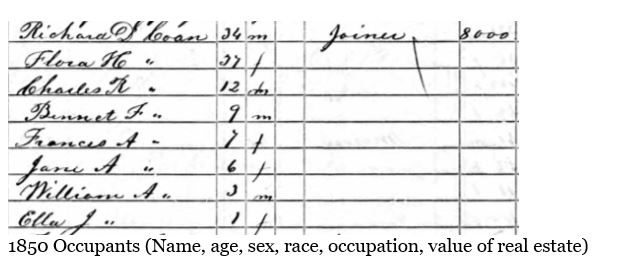 Richard D Coan 34 m Joiner 8000
Flora H " 37 f
Charles R " 12 m
Bennet F " 9 m
Frances A " 7 f
Jane A " 6 f
William A " 3 m
Ella J " 1 f
1850 Occupants (Name, age, sex, race, occupation, value of real estate)